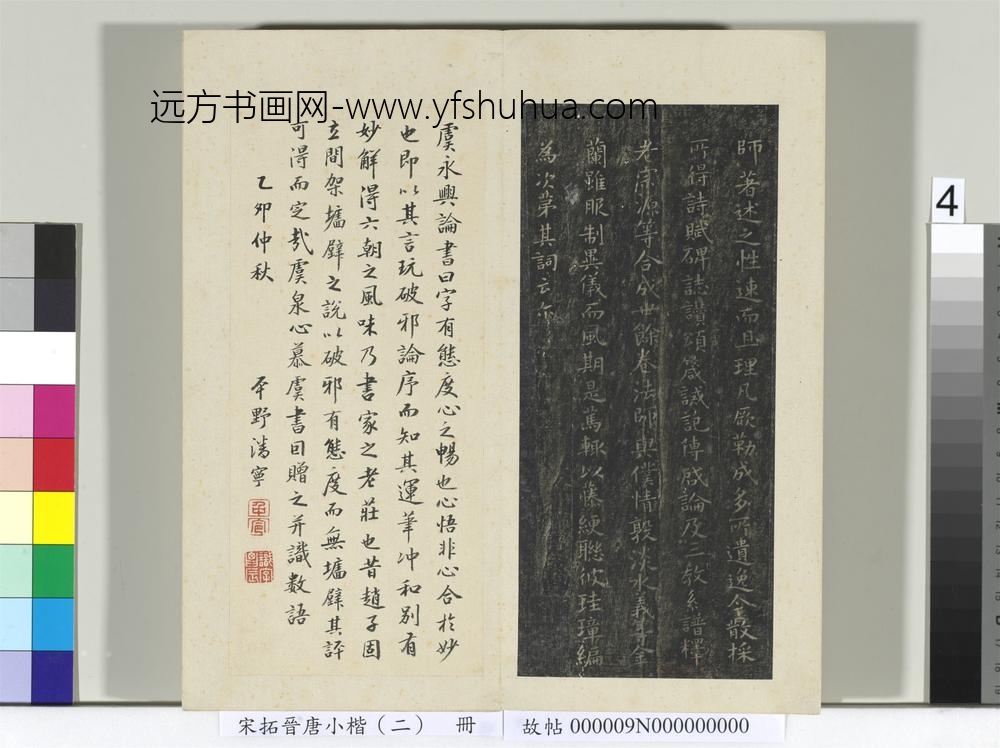 远方书画网-www.yfshuhua.com
師著述之性速而且理凡厥勒成多所遺逸今最採
所得詩賦碑誌讚頌箴誡記傳啓論及三教系譜釋
老宗源等合成卅餘卷法師與僕情敦淡水義等金
蘭雖服制異儀而風期是篤輒以藤綆聯彼珪璋編
為次第其詞云尔
虞永興論書曰字有態度心之暢也心悟非心合於妙
也即以其言玩破邪論序而知其運筆冲和别有
妙解得六朝之風味乃書家之老莊也昔趙子固
立間架墟壁之說以破邪有態度而無墟壁其評
可得而定哉虞泉心慕虞書因贈之并識數語
乙卯仲秋 平野潘寧
4
宋拓晉唐小楷（二） 冊
故帖 000009N000000000